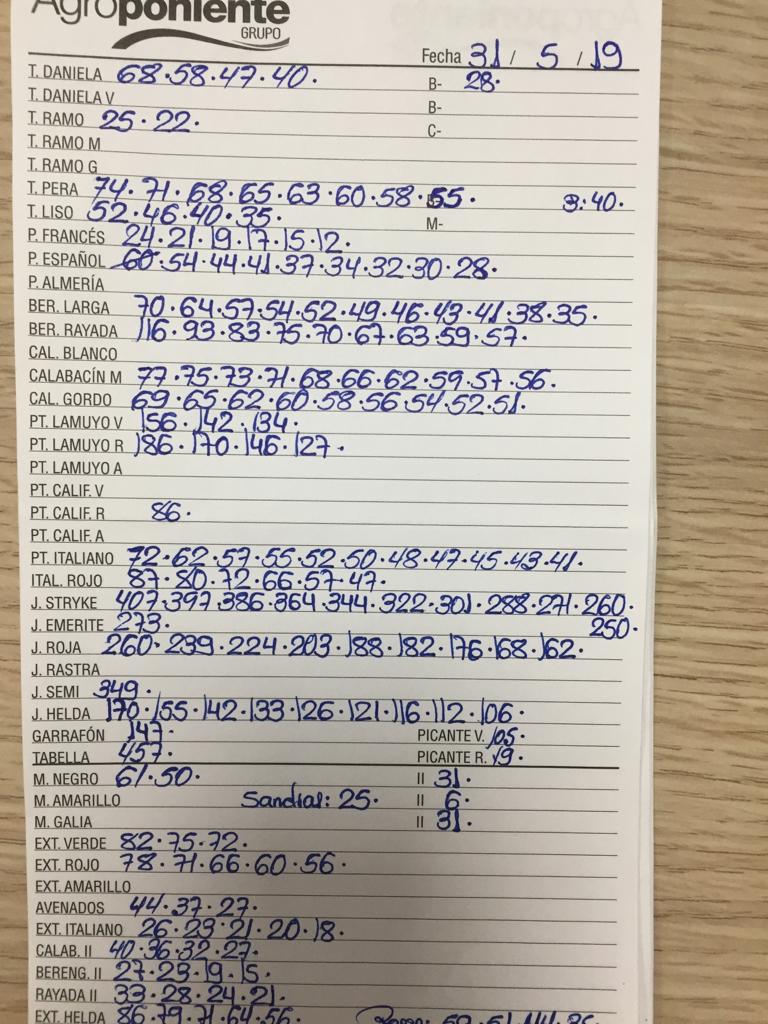 Agroponiente
GRUPO
Fecha 31 / 5 / 19
T. DANIELA 68·58·47·40. B- 28·
T. DANIELA V B-
T. RAMO 25·22· C-
T. RAMO M
T. RAMO G
T. PERA 74·71·68·65·63·60·58·55· 3:40·
T. LISO 52·46·40·35· M-
P. FRANCÉS 24·21·19·17·15·12·
P. ESPAÑOL 60·54·44·41·37·34·32·30·28·
P. ALMERÍA
BER. LARGA 70·64·57·54·52·49·46·43·41·38·35·
BER. RAYADA 116·93·83·75·70·67·63·59·57·
CAL. BLANCO
CALABACÍN M 77·75·73·71·68·66·62·59·57·56·
CAL. GORDO 69·65·62·60·58·56·54·52·51·
PT. LAMUYO V 156·142·134·
PT. LAMUYO R 186·170·146·127·
PT. LAMUYO A
PT. CALIF. V
PT. CALIF. R 86·
PT. CALIF. A
PT. ITALIANO 72·62·57·55·52·50·48·47·45·43·41·
ITAL. ROJO 87·80·72·66·57·47·
J. STRYKE 407·397·386·364·344·322·301·288·271·260·
J. EMERITE 273· 250·
J. ROJA 260·239·224·203·188·182·176·168·162·
J. RASTRA
J. SEMI 349·
J. HELDA 170·155·142·133·126·121·116·112·106·
GARRAFÓN 147· PICANTE V. 105·
TABELLA 457· PICANTE R. 19·
M. NEGRO 61·50· II 31·
M. AMARILLO Sandias: 25· II 6·
M. GALIA II 31·
EXT. VERDE 82·75·72·
EXT. ROJO 78·71·66·60·56·
EXT. AMARILLO
AVENADOS 44·37·27·
EXT. ITALIANO 26·23·21·20·18·
CALAB. II 40·36·32·27·
BERENG. II 27·23·19·15·
RAYADA II 33·28·24·21·
EXT. HELDA 86·79·71·64·56·